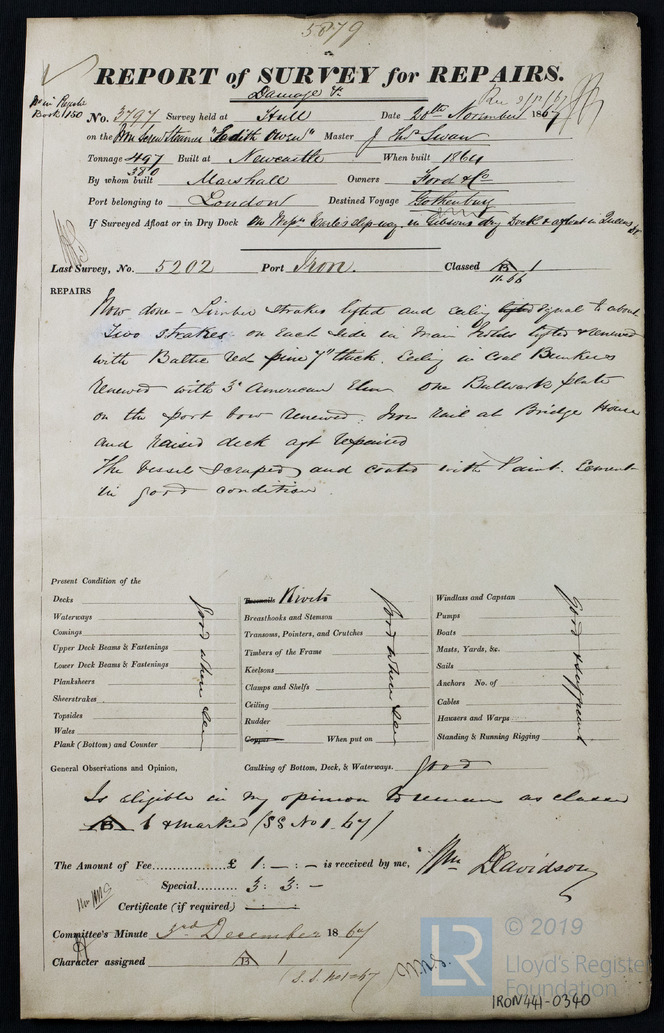 5879
REPORT of SURVEY for REPAIRS.
Damage &c.
Book 150
No. 3797 Survey held at Hull Date 20th November 1867
on the Iron Screw Steamer "Edith Owen" Master J Thos Swan
Tonnage 497 Built at Newcastle When built 1864
380
By whom built Marshall Owners Ford & Co
Port belonging to London Destined Voyage Gothenburg
If Surveyed Afloat or in Dry Dock On Messrs Earle's slip-way, in Gibsons dry Dock & afloat in Queens Dk.
Last Survey, No. 5202 Port Iron. Classed A 1
11.66
REPAIRS
Now done - Limber strakes lifted and ceiling lifted equal to about
two strakes on each side in Main holds lifted & renewed
with Baltic red pine 7" thick. Ceiling in Coal Bunkers
renewed with 3" American Elm one Bullwark plate
on the port bow renewed. Iron rail at Bridge House
and raised deck aft repaired
The Vessel scraped and coated with Paint. Cement
in good condition.
Present Condition of the
Decks
Waterways
Comings
Upper Deck Beams & Fastenings
Lower Deck Beams & Fastenings
Planksheers
Sheerstrakes
Topsides
Wales
Plank (Bottom) and Counter
Good where seen
Treenails Rivets
Breasthooks and Stemson
Transoms, Pointers, and Crutches
Timbers of the Frame
Keelsons
Clamps and Shelfs
Ceiling
Rudder
Copper When put on
Good where seen
Windlass and Capstan
Pumps
Boats
Masts, Yards, &c.
Sails
Anchors No. of
Cables
Hausers and Warps
Standing & Running Rigging
Good & sufficient
General Observations and Opinion, Caulking of Bottom, Deck, & Waterways. good
Is eligible in my opinion to remain as classed
A 1 & marked (SS No 1-67)
The Amount of Fee............... £ 1 : – : – is received by me, Wm Davidson
Special.......... 3 : 3 : –
Certificate (if required) – : – : –
Committee's Minute 3rd December 1867
Character assigned A 1
S.S. No 1-67
© 2019
LR
Lloyd's Register
Foundation
IRON441-0340